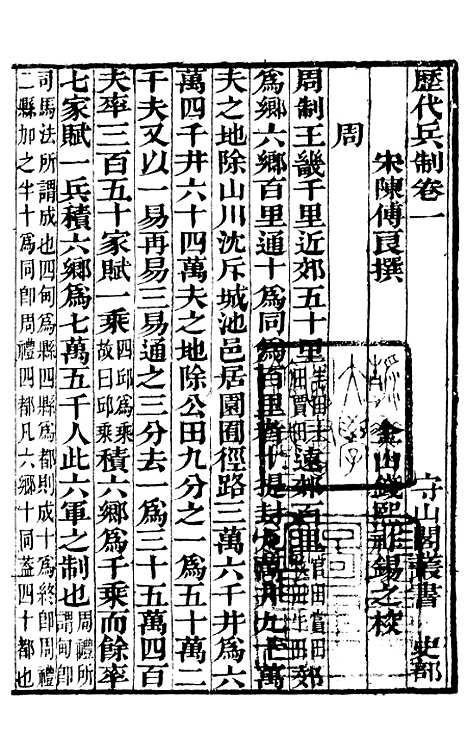 歷代兵制卷一　守山閣叢書　史部
宋陳傅良撰　金山錢熙祚錫之校
周
周制王畿千里近郊五十里遠郊百里官田賞田郊
為鄉六鄉百里通十為同為百里者十提封九十萬
夫之地除山川沈斥城池邑居園囿徑路三萬六千井為六
萬四千井六十四萬夫之地除公田九分之一為五十萬二
千夫又以一易再易三易通之三分去一為三十五萬四百
夫率三百五十家賦一乘四邱為乘故曰邱乘積六鄉為千乘而餘率
七家賦一兵積六鄉為七萬五千人此六軍之制也周禮所謂甸即
司馬法所謂成也四甸為縣四縣為都則成十為終即周禮
二縣加之半十為同即周禮四都凡六鄉十同蓋四十都也